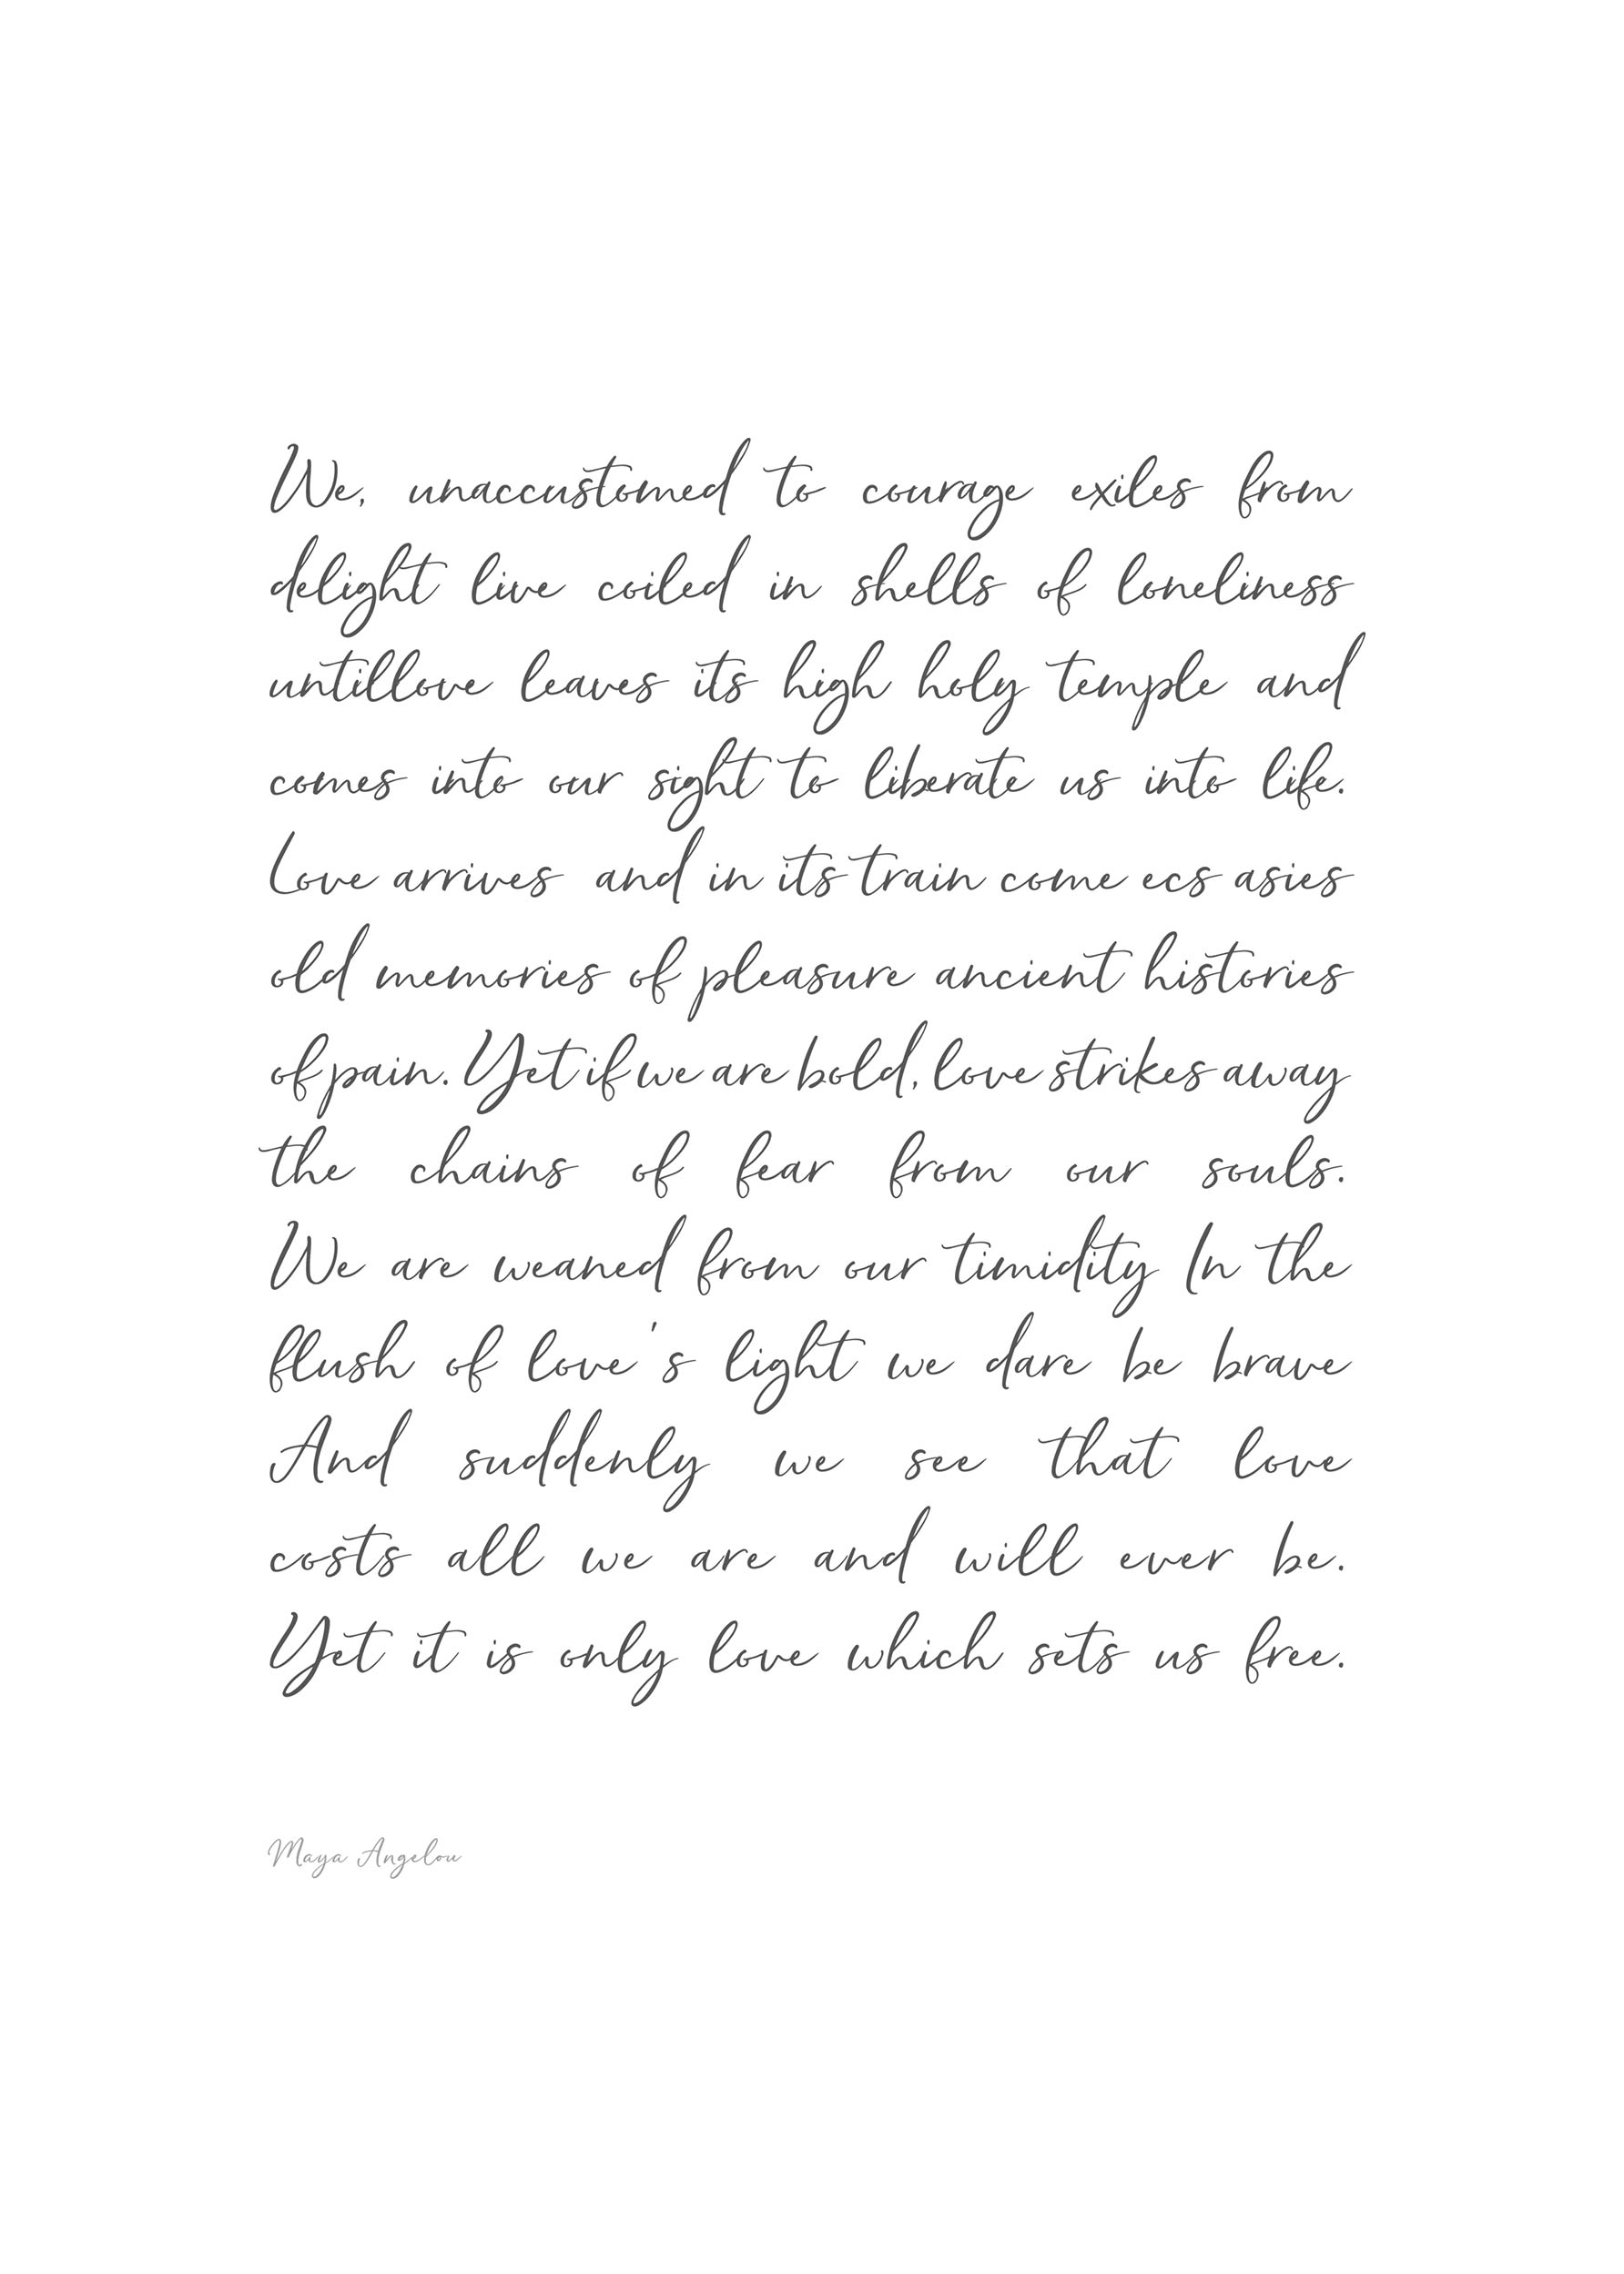 We, unaccustomed to courage exiles from
delight live coiled in shells of loneliness
untillove leaves its high holy temple and
comes into our sight to liberate us into life.
Love arrives and in its train come ecs asies
old memories of pleasure ancient histories
of pain. Yet if we are bold, love strikes away
the chains of fear from our souls.
We are weaned from our timidity In the
flush of love's light we dare be brave
And suddenly we see that love
costs all we are and will ever be.
Yet it is only love which sets us free.
Maya Angelou